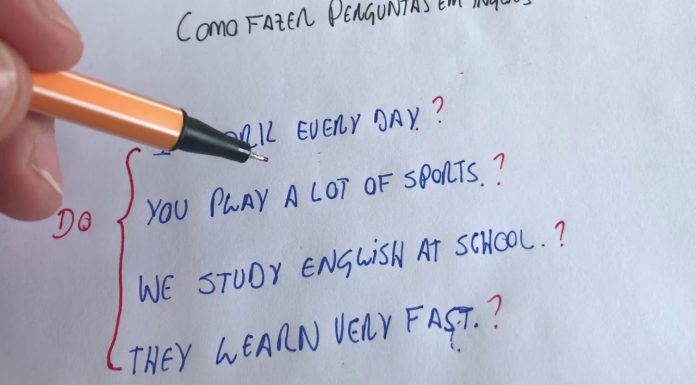 COMO FAZER PERGUNTAS EM INGLÊS
I EVERY DAY.?
YOU PLAY A LOT OF SPORTS.?
DO
WE STUDY ENGLISH AT SCHOOL.?
THEY LEARN VERY FAST.?